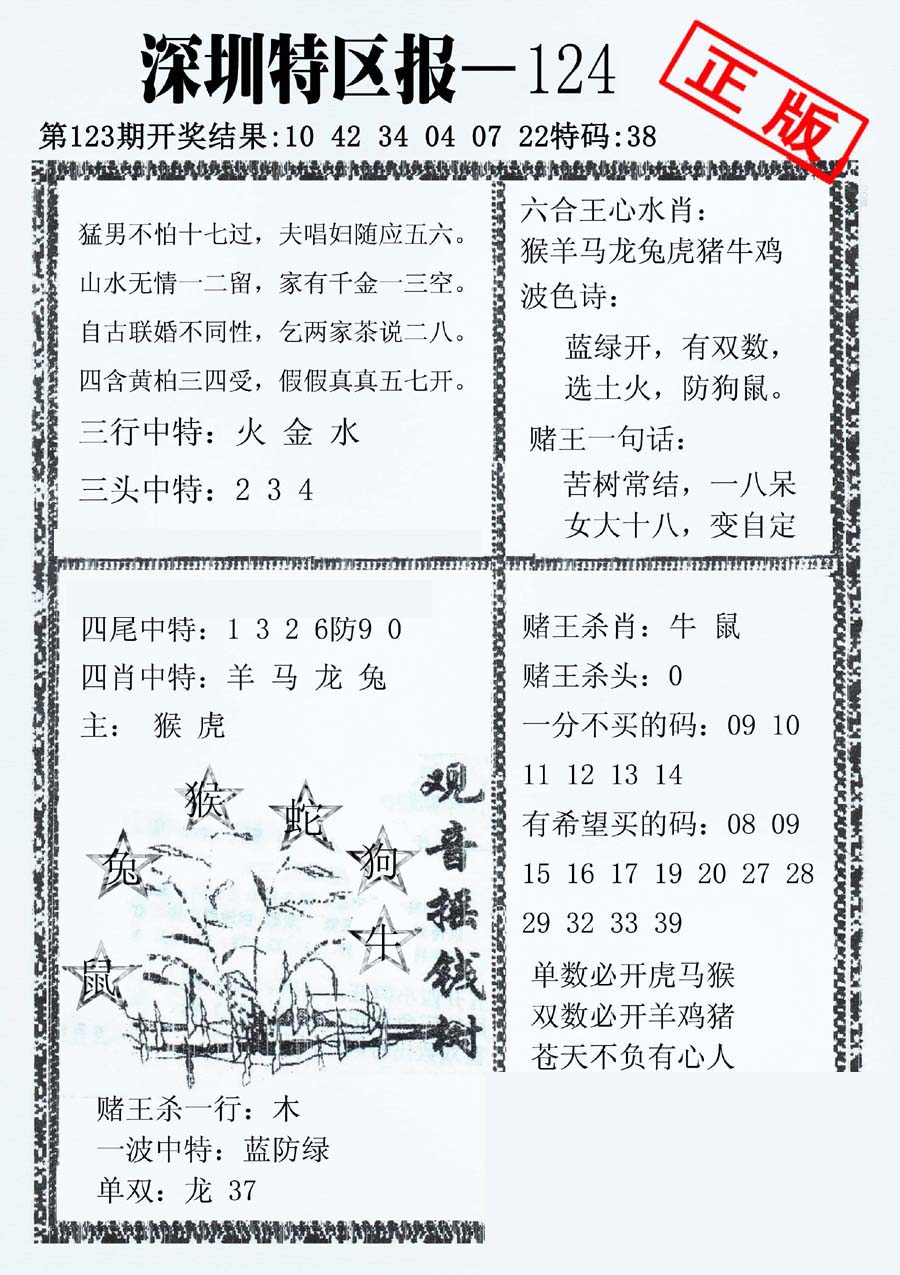 深圳特区报—124
正版
第123期开奖结果:10 42 34 04 07 22特码:38
猛男不怕十七过，夫唱妇随应五六。
山水无情一二留，家有千金一三空。
自古联婚不同性，乞两家茶说二八。
四含黄柏三四受，假假真真五七开。
三行中特：火 金 水
三头中特：2 3 4
六合王心水肖：
猴羊马龙兔虎猪牛鸡
波色诗：
蓝绿开，有双数，
选土火，防狗鼠。
赌王一句话：
苦树常结，一八呆
女大十八，变自定
四尾中特：1 3 2 6防9 0
四肖中特：羊 马 龙 兔
主： 猴 虎
猴
蛇
兔
狗
牛
鼠
观音摇钱树
赌王杀一行：木
一波中特：蓝防绿
单双：龙 37
赌王杀肖：牛 鼠
赌王杀头：0
一分不买的码：09 10
11 12 13 14
有希望买的码：08 09
15 16 17 19 20 27 28
29 32 33 39
单数必开虎马猴
双数必开羊鸡猪
苍天不负有心人